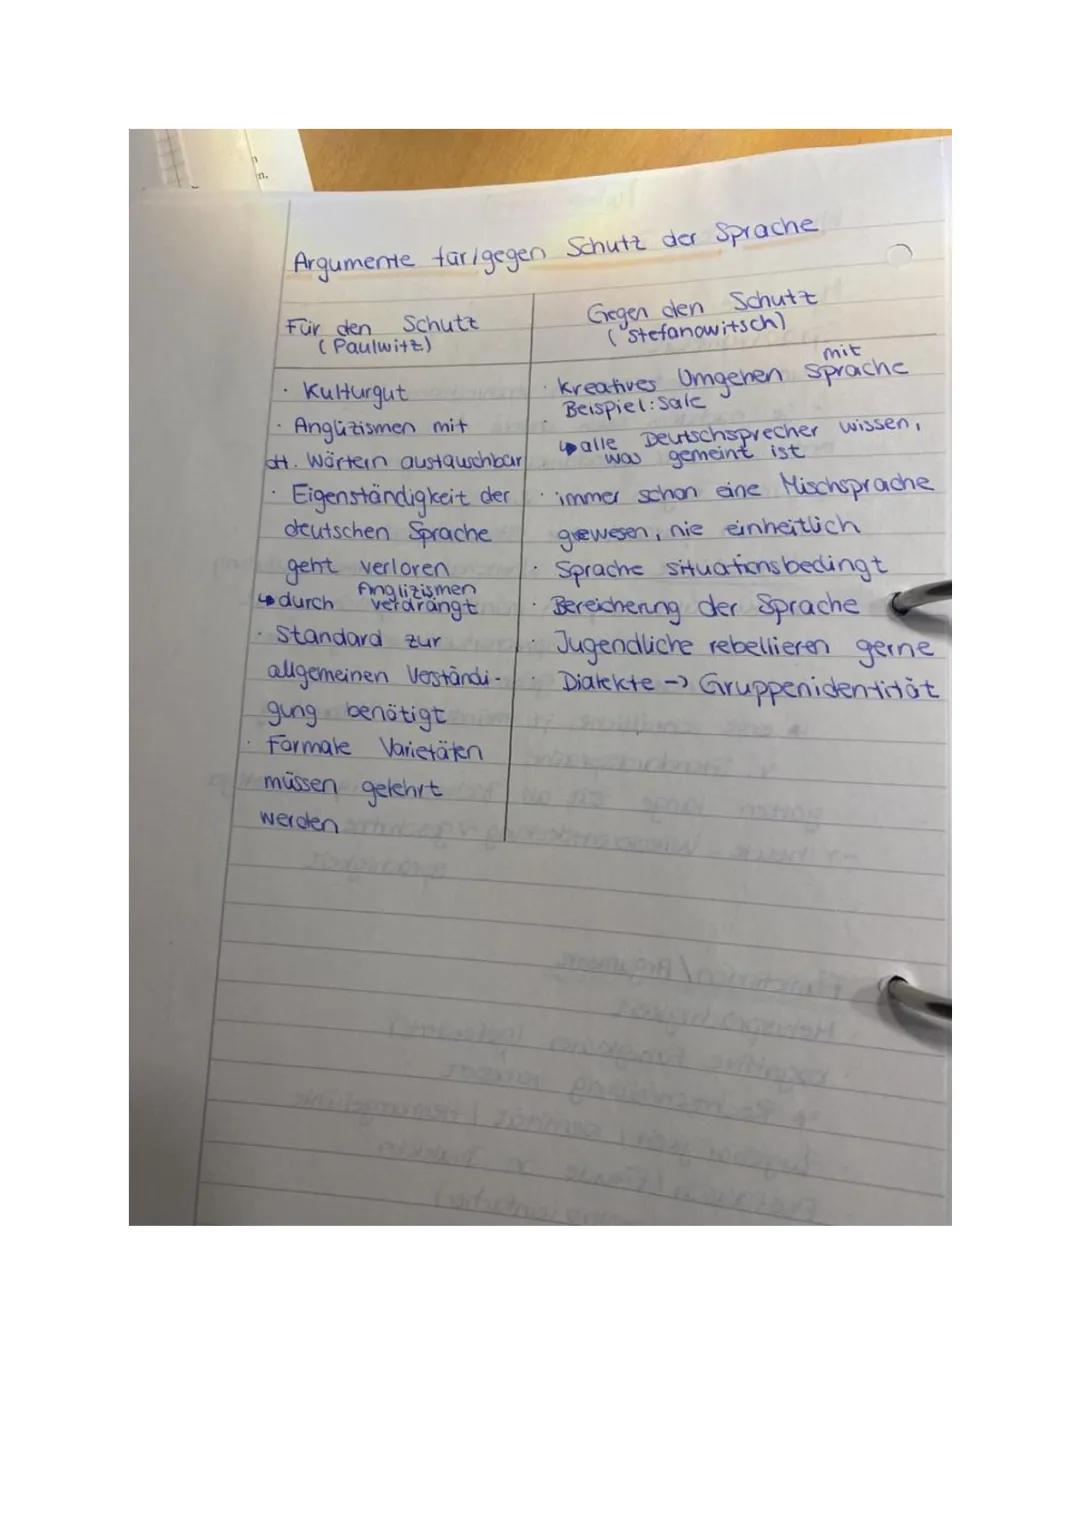 n.
Argumente für/gegen Schutz der Sprache
Für den Schutz
(Paulwitz)
· Kulturgut
· Anglizismen mit
dt. Wörtern austauschbar
· Eigenständigkeit der
deutschen Sprache
geht verloren
↳ durch Anglizismen verdrängt
· Standard zur
allgemeinen Verständi-
gung benötigt
· Formale Varietäten
müssen gelehrt
werden
Gegen den Schutz
(Stefanowitsch)
· kreatives Umgehen mit Sprache
Beispiel: Sale
↳ alle Deutschsprecher wissen,
was gemeint ist
· immer schon eine Mischsprache
gewesen, nie einheitlich
· Sprache situationsbedingt
· Bereicherung der Sprache
· Jugendliche rebellieren gerne
· Dialekte -> Gruppenidentität